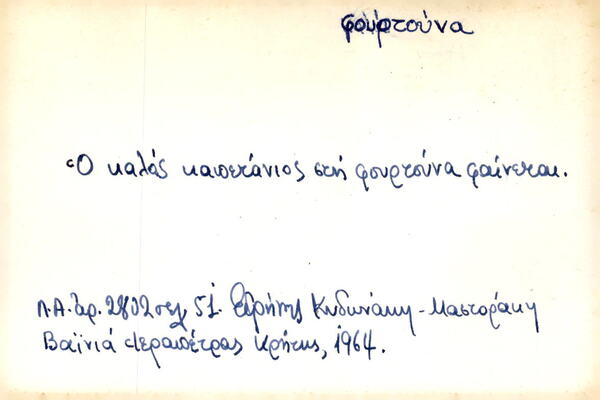 φουρτούνα
Ὁ καλός καπετάνιος στή φουρτούνα φαίνεται.
Λ.Α. ἀρ. 2802 σελ 51. Εἰρήνης Κυδωνάκη - Μαστοράκη
Βαϊνιά Ἱεραπέτρας Κρήτης, 1964.